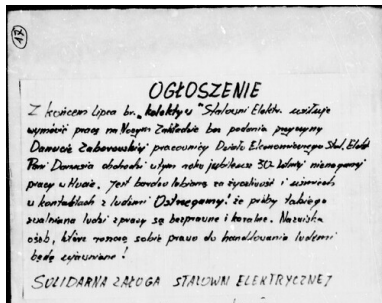 17
OGŁOSZENIE
Z końcem lipca br. "kolektyw" Stalowni Elektr. usiłuje
wymówić pracę na Naszym Zakładzie bez podania przyczyny
Danucie Zaborowskiej pracownicy Działu Ekonomicznego Stal. Elekt
Pani Danusia obchodzi w tym roku jubileusz 30-letniej nienagannej
pracy w Hucie. Jest bardzo lubiana za życzliwość i uśmiech
w kontaktach z ludźmi Ostrzegamy! że próby takiego
zwalniania ludzi z pracy są bezprawne i karalne. Nazwiska
osób, które roszczą sobie prawo do handlowania ludźmi
będą ujawnione!
SOLIDARNA ZAŁOGA STALOWNI ELEKTRYCZNEJ